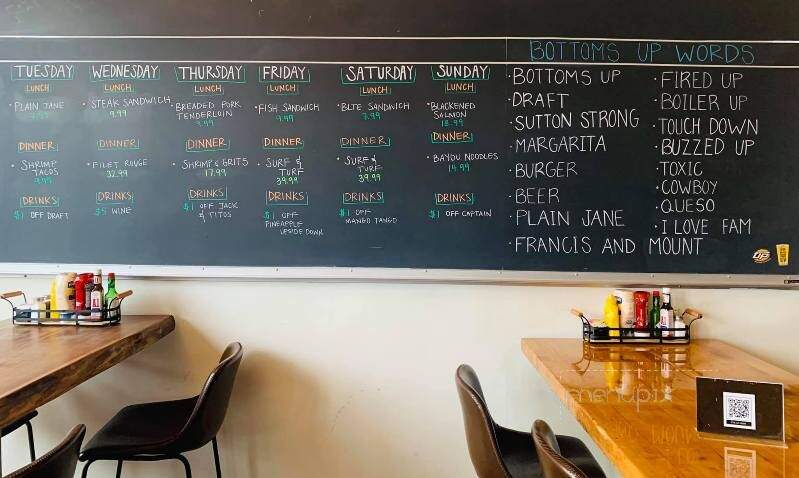 BOTTOMS UP WORDS
TUESDAY
LUNCH
• PLAIN JANE
DINNER
• SHRIMP TACOS
9.99
DRINKS
$1 OFF DRAFT
WEDNESDAY
LUNCH
• STEAK SANDWICH
9.99
DINNER
• FILET ROUGE
32.99
DRINKS
$5 WINE
THURSDAY
LUNCH
• BREADED PORK
TENDERLOIN
DINNER
• SHRIMP & GRITS
17.99
DRINKS
$1 OFF JACK
& TITOS
FRIDAY
LUNCH
• FISH SANDWICH
9.99
DINNER
• SURF &
TURF
39.99
DRINKS
$1 OFF
PINEAPPLE
UPSIDE DOWN
SATURDAY
LUNCH
• BLTE SANDWICH
DINNER
• SURF &
TURF
39.99
DRINKS
$1 OFF
MANGO TANGO
SUNDAY
LUNCH
• BLACKENED
SALMON
DINNER
• BAYOU NOODLES
DRINKS
$1 OFF CAPTAIN
• BOTTOMS UP
• DRAFT
• SUTTON STRONG
• MARGARITA
• BURGER
• BEER
• PLAIN JANE
• FRANCIS AND MOUNT
• FIRED UP
• BOILER UP
• TOUCH DOWN
• BUZZED UP
• TOXIC
• COWBOY
• QUESO
• I LOVE FAM
UP
menupix